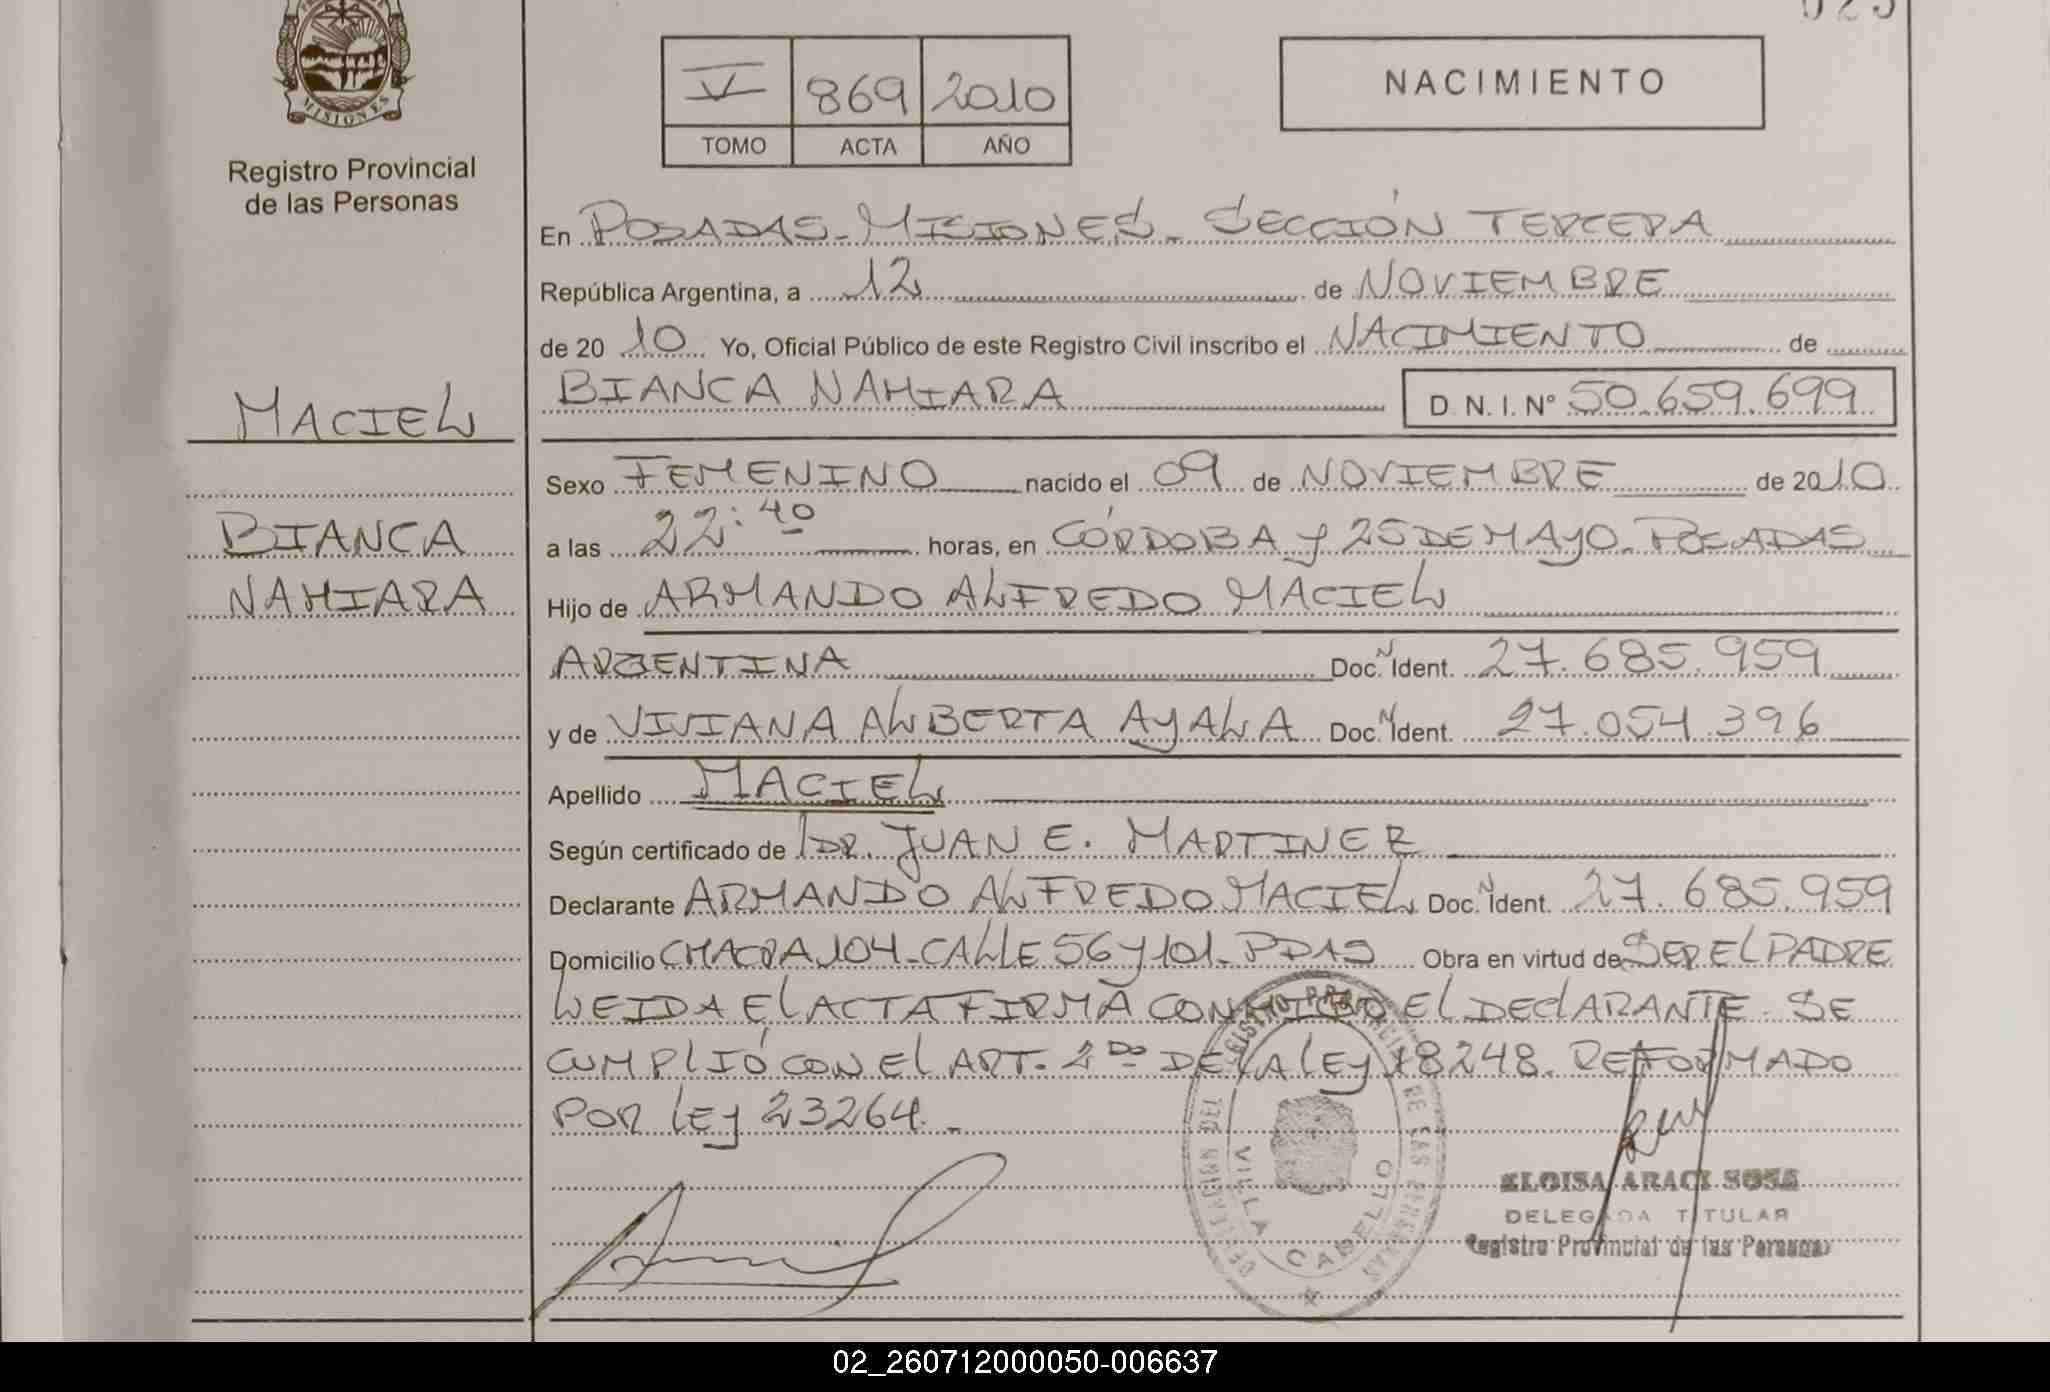 MISIONES
Registro Provincial
de las Personas
MACIEL
BIANCA
NAHIARA
025
V 869 2010
TOMO ACTA AÑO
NACIMIENTO
En POSADAS-MISIONES- SECCIÓN TERCERA
República Argentina, a 12 de NOVIEMBRE
de 2010 Yo, Oficial Público de este Registro Civil inscribo el NACIMIENTO de
BIANCA NAHIARA D.N.I. Nº 50.659.699
Sexo FEMENINO nacido el 09 de NOVIEMBRE de 2010
a las 22:40 horas, en CÓRDOBA y 25 DE MAYO-POSADAS
Hijo de ARMANDO ALFREDO MACIEL
ARGENTINA Doc. N Ident. 27.685.959
y de VIVIANA ALBERTA AYALA Doc. N Ident. 27.054.396
Apellido MACIEL
Según certificado de DR. JUAN E. MARTINER
Declarante ARMANDO ALFREDO MACIEL Doc. N Ident. 27.685.959
Domicilio CHACRA 104-CALLE 56 Y 101-PDAS Obra en virtud de SER EL PADRE
LEIDA El ACTA FIRMA CONMIGO El DEClARANTE. SE
CUMPLIÓ CON El ART. 2do DE lA lEy 18248. REFORMADO
POR lEy 23264.-
DELEGACION DEL REGISTRO PROVINCIAL DE LAS PERSONAS
VILLA CABELLO
ELOISA ARACI SOSA
DELEGADA TITULAR
Registro Provincial de las Personas
02_260712000050-006637